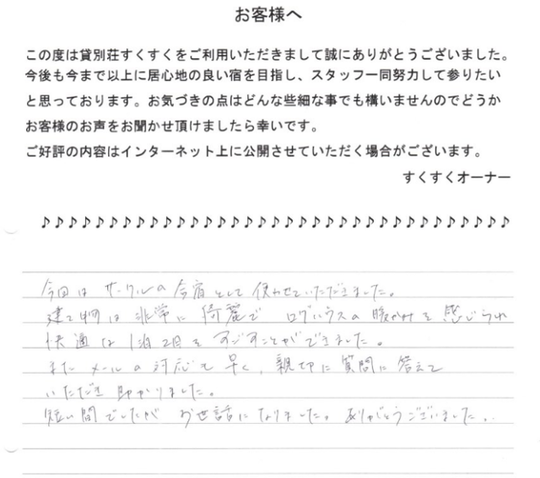 お客様へ
この度は貸別荘すくすくをご利用いただきまして誠にありがとうございました。
今後も今まで以上に居心地の良い宿を目指し、スタッフ一同努力して参りたい
と思っております。お気づきの点はどんな些細な事でも構いませんのでどうか
お客様のお声をお聞かせ頂けましたら幸いです。
ご好評の内容はインターネット上に公開させていただく場合がございます。
すくすくオーナー
♪♪♪♪♪♪♪♪♪♪♪♪♪♪♪♪♪♪♪♪♪♪♪♪♪♪♪♪♪♪♪♪♪♪♪
今回は サークルの 合宿として 使わせていただきました。
建て物は 非常に 綺麗で ログハウスの 暖かみを 感じられ
快適な 1泊2日を すごすことができました。
また メールの 対応も 早く、親切に 質問に 答えて
いただき 助かりました。
短い間でしたが お世話になりました。ありがとうございました。